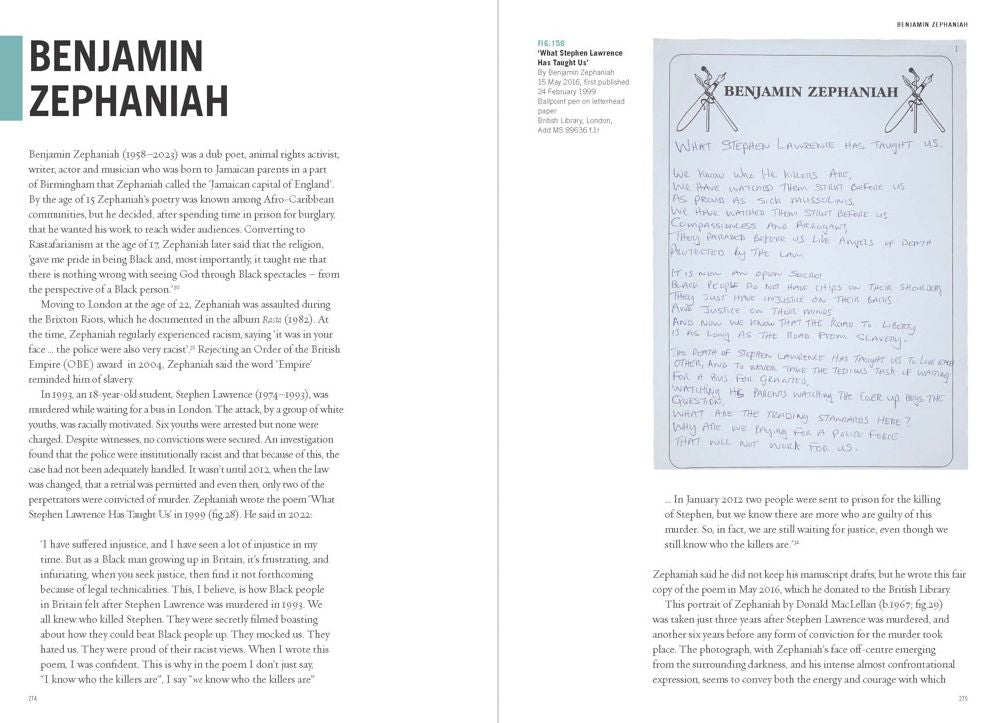 BENJAMIN
ZEPHANIAH
Benjamin Zephaniah (1958–2023) was a dub poet, animal rights activist,
writer, actor and musician who was born to Jamaican parents in a part
of Birmingham that Zephaniah called the 'Jamaican capital of England'.
By the age of 15 Zephaniah's poetry was known among Afro-Caribbean
communities, but he decided, after spending time in prison for burglary,
that he wanted his work to reach wider audiences. Converting to
Rastafarianism at the age of 17, Zephaniah later said that the religion,
'gave me pride in being Black and, most importantly, it taught me that
there is nothing wrong with seeing God through Black spectacles – from
the perspective of a Black person.'³⁰
Moving to London at the age of 22, Zephaniah was assaulted during
the Brixton Riots, which he documented in the album Rasta (1982). At
the time, Zephaniah regularly experienced racism, saying 'it was in your
face ... the police were also very racist'.³¹ Rejecting an Order of the British
Empire (OBE) award in 2004, Zephaniah said the word 'Empire'
reminded him of slavery.
In 1993, an 18-year-old student, Stephen Lawrence (1974–1993), was
murdered while waiting for a bus in London. The attack, by a group of white
youths, was racially motivated. Six youths were arrested but none were
charged. Despite witnesses, no convictions were secured. An investigation
found that the police were institutionally racist and that because of this, the
case had not been adequately handled. It wasn't until 2012, when the law
was changed, that a retrial was permitted and even then, only two of the
perpetrators were convicted of murder. Zephaniah wrote the poem 'What
Stephen Lawrence Has Taught Us' in 1999 (fig.28). He said in 2022:
'I have suffered injustice, and I have seen a lot of injustice in my
time. But as a Black man growing up in Britain, it's frustrating, and
infuriating, when you seek justice, then find it not forthcoming
because of legal technicalities. This, I believe, is how Black people
in Britain felt after Stephen Lawrence was murdered in 1993. We
all knew who killed Stephen. They were secretly filmed boasting
about how they could beat Black people up. They mocked us. They
hated us. They were proud of their racist views. When I wrote this
poem, I was confident. This is why in the poem I don't just say,
"I know who the killers are", I say "we know who the killers are"
274
BENJAMIN ZEPHANIAH
FIG.158
'What Stephen Lawrence
Has Taught Us'
By Benjamin Zephaniah
15 May 2016, first published
24 February 1999
Ballpoint pen on letterhead
paper
British Library, London,
Add MS 89636 f.1r
1
BENJAMIN ZEPHANIAH
WHAT STEPHEN LAWRENCE HAS TAUGHT US.
WE KNOW WHO THE KILLERS ARE,
WE HAVE WATCHED THEM STRUT BEFORE US
AS PROUD AS SICK MUSSOLINIS.
WE HAVE WATCHED THEM STRUT BEFORE US
COMPASSIONLESS AND ARROGANT,
THEY PARADED BEFORE US LIKE ANGELS OF DEATH
PROTECTED BY THE LAW.
IT IS NOW AN OPEN SECRET
BLACK PEOPLE DO NOT HAVE CHIPS ON THEIR SHOULDERS,
THEY JUST HAVE INJUSTICE ON THEIR BACKS
AND JUSTICE ON THEIR MINDS
AND NOW WE KNOW THAT THE ROAD TO LIBERTY
IS AS LONG AS THE ROAD FROM SLAVERY.
THE DEATH OF STEPHEN LAWRENCE HAS TAUGHT US TO LOVE EACH
OTHER, AND TO NEVER TAKE THE TEDIUS TASK OF WAITING
FOR A BUS FOR GRANTED,
WATCHING HIS PARENTS WATCHING THE COVER UP BEGS THE
QUESTION,
WHAT ARE THE TRADING STANDARDS HERE?
WHY ARE WE PAYING FOR A POLICE FORCE
THAT WILL NOT WORK FOR US.
... In January 2012 two people were sent to prison for the killing
of Stephen, but we know there are more who are guilty of this
murder. So, in fact, we are still waiting for justice, even though we
still know who the killers are.'³²
Zephaniah said he did not keep his manuscript drafts, but he wrote this fair
copy of the poem in May 2016, which he donated to the British Library.
This portrait of Zephaniah by Donald MacLellan (b.1967; fig.29)
was taken just three years after Stephen Lawrence was murdered, and
another six years before any form of conviction for the murder took
place. The photograph, with Zephaniah's face off-centre emerging
from the surrounding darkness, and his intense almost confrontational
expression, seems to convey both the energy and courage with which
275